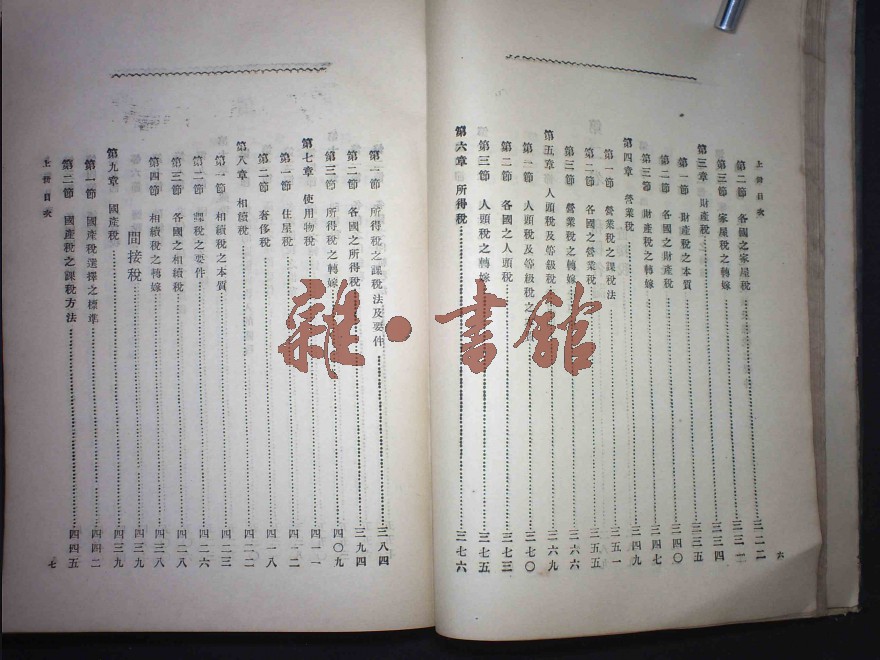 上册目次
第二節 各國之家屋稅 三二二
第三節 家屋稅之轉嫁 三三一
第三章 財產稅 三三四
第一節 財產稅之本質 三三五
第二節 各國之財產稅 三四〇
第三節 財產稅之轉嫁 三四七
第四章 營業稅 三四九
第一節 營業稅之課稅法 三五一
第二節 各國之營業稅 三五五
第三節 營業稅之轉嫁 三六六
第五章 人頭稅及等級稅 三六九
第一節 人頭稅及等級稅之 三七〇
第二節 各國之人頭稅 三七三
第三節 人頭稅之轉嫁 三七五
第六章 所得稅 三七六
六
第一節 所得稅之課稅法及要件 三八四
第二節 各國之所得稅 三九四
第三節 所得稅之轉嫁 四〇九
第七章 使用物稅 四一一
第一節 住屋稅 四一二
第二節 奢侈稅 四一八
第八章 相續稅 四二二
第一節 相續稅之本質 四二三
第二節 課稅之要件 四二六
第三節 各國之相續稅 四二八
第四節 相續稅之轉嫁 四三五
間接稅
第九章 國產稅 四三九
第一節 國產稅選擇之標準 四四二
第二節 國產稅之課稅方法 四四五
上册目次
七
雜·書館